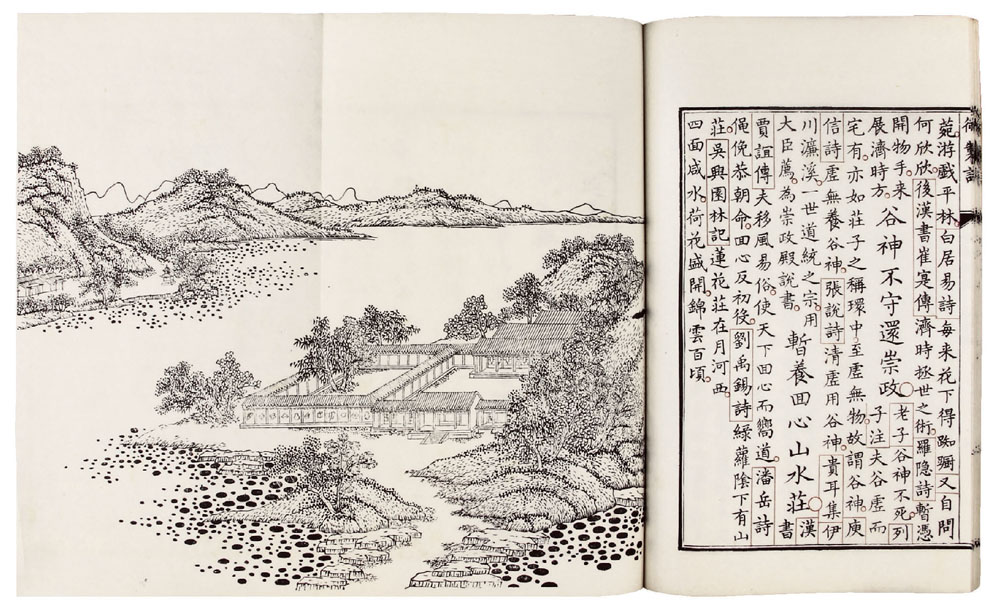 御製詩
菀游戲平林白居易詩每來花下得踟躕又自問
何欣欣後漢書崔寔傳濟時拯世之術羅隱詩暫憑
開物手來
展濟時方
谷神不守還崇政
老子谷神不死列
子注夫谷虛而
宅有亦如莊子之稱環中至虛無物故謂谷神庾
信詩虛無養谷神張說詩清虛用谷神貴耳集伊
川濂溪一世道統之宗用
大臣薦為崇政殿說書
暫養回心山水莊
漢
書
賈誼傳夫移風易俗使天下回心而嚮道潘岳詩
僶俛恭朝命回心反初役劉禹錫詩綠蘿陰下有山
莊吳興園林記蓮花莊在月河西
四面咸水荷花盛開錦雲百頃